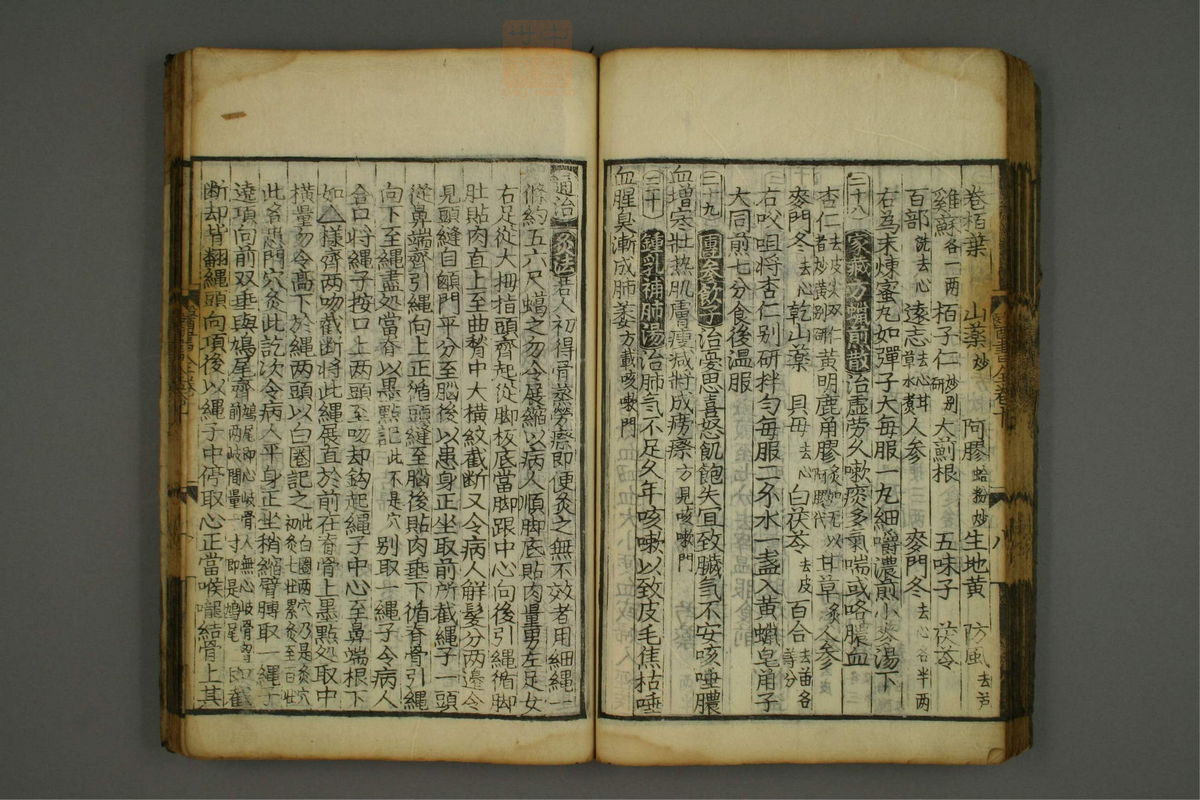 卷栢葉 山藥炒 阿膠蛤粉炒 生地黄 防風去芦
雞蘇各一兩 栢子仁炒別研 大薊根 五味子 茯苓
百部洗去心 遠志去心耳草水煮 人参 麥門冬去心各半兩
右為末煉蜜丸如彈子大每服一丸細嚼濃煎小麥湯下
二十八 家藏方蠟煎散治虚勞久嗽痰多氣喘或咯膿血
杏仁去皮尖双仁者炒黄別研 黄明鹿角膠炙如无以阿膠代 甘草炙 人参
麥門冬去心 乾山藥 貝母去心 白茯苓去皮 百合去苗各等分
右㕮咀将杏仁别研拌勻每服二分水一盞入黄蠟皂角子
大同煎七分食後温服
二十九 團参飲子治憂思喜怒飢飽失冝致臓氣不安咳唾膿
血增寒壮热肌膚瘦减将成癆瘵方見咳嗽門
三十 鍾乳補肺湯治肺氣不足久年咳嗽以致皮毛焦枯唾
血腥臭漸成肺萎方載咳嗽門
通治 灸法 若人初得骨蒸勞瘵即便灸之無不效者用細繩一
條約五六尺蠟之勿令展縮以病人順脚底貼肉量男左足女
右足從大拇指頭齊起從脚板底當脚跟中心向後引繩循脚
肚貼肉直上至曲䐐中大横紋截断又令病人觧髮分两邊令
見頭縫自顖門平分至腦後以患身正坐取前所截繩子一頭
從鼻端齊引繩向上正循頭縫至腦後貼肉垂下循脊骨引繩
向下至繩盡処當脊以墨點記此不是穴别取一繩子令病人
合口将繩子按口上两頭至吻却鈎起繩子中心至鼻端根下
如△樣齊两吻截断将此繩展直於前在脊骨上墨點処取中
横量勿令高下於繩两頭以白圈記之此白圈两穴乃是灸穴初灸七壮累灸至百壮
此名患門穴灸此訖次令病人平身正坐稍縮臂膊取一繩子
遶項向前双垂與鳩尾齊鳩尾即心岐骨人無心岐骨者前两岐間量一寸即是鳩尾即截
断却背翻繩頭向項後以繩子中停取心正當喉嚨結骨上其